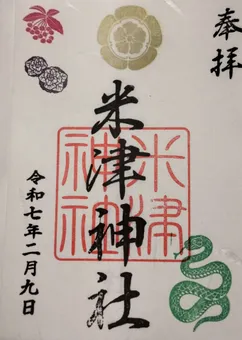 奉拝
米津神社
米津神社
令和七年二月九日